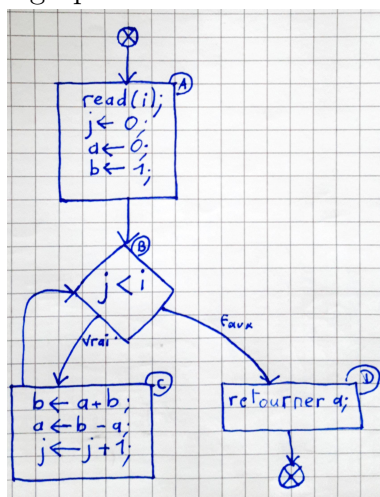 A
read(i);
j ← 0;
a ← 0;
b ← 1;
B
j < i
Vrai
Faux
C
b ← a + b;
a ← b - a;
j ← j + 1;
D
retourner a;